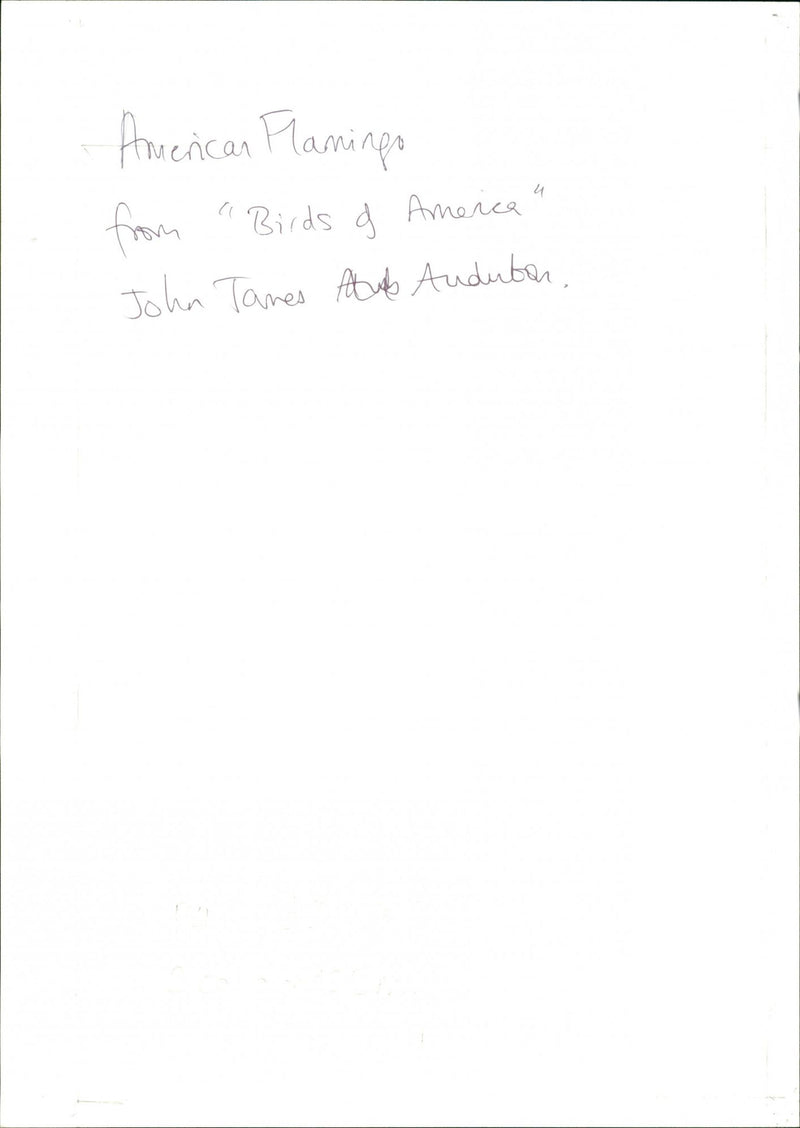 American Flamingo
from "Birds of America"
John James Audubon.